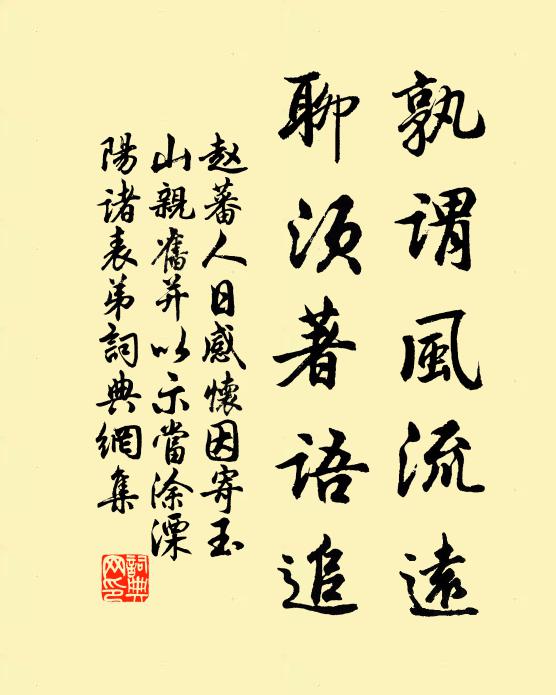 孰謂風流遠
聊須著語追
赵蕃人日感懷因寄玉
山親舊并以示當塗溧
陽諸表弟詞典網集
詞典
网印